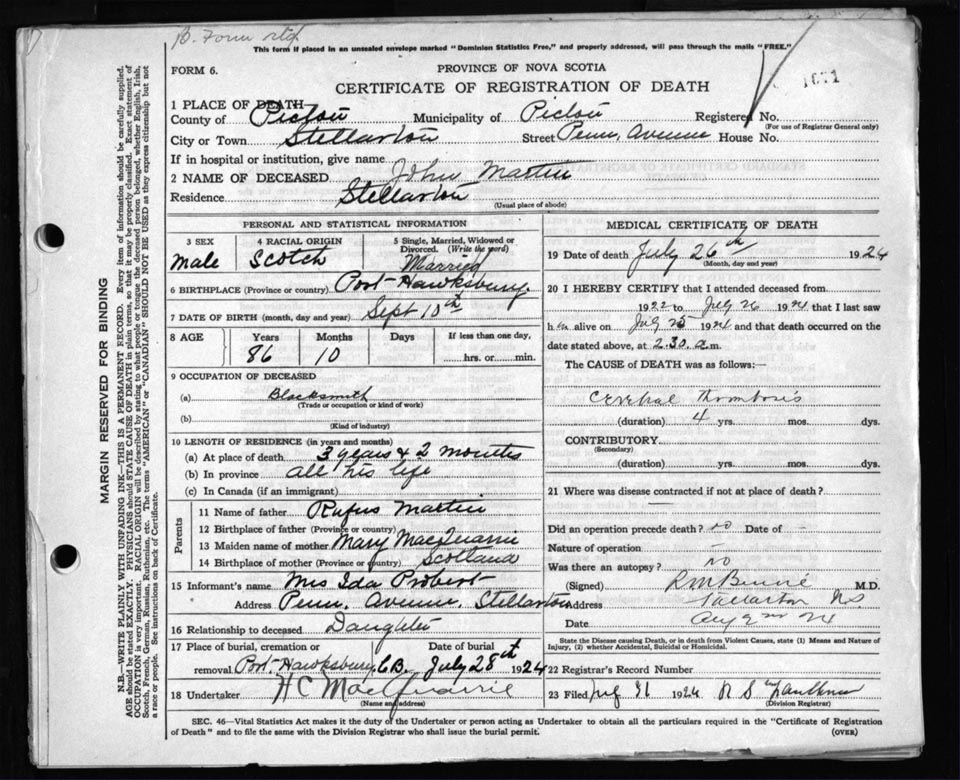 B. Form
This form if placed in an unsealed envelope marked "Dominion Statistics Free," and properly addressed, will pass through the mails "FREE."
FORM 6.
PROVINCE OF NOVA SCOTIA
CERTIFICATE OF REGISTRATION OF DEATH
1 PLACE OF DEATH
County of Pictou Municipality of Pictou Registered No.
(For use of Registrar General only)
City or Town Stellarton Street Penn. Avenue House No.
If in hospital or institution, give name
2 NAME OF DECEASED. John Martin
Residence Stellarton
(Usual place of abode)
PERSONAL AND STATISTICAL INFORMATION
3 SEX 4 RACIAL ORIGIN 5 Single, Married, Widowed or Divorced. (Write the word)
Male Scotch Married
6 BIRTHPLACE (Province or country) Port Hawksbury
7 DATE OF BIRTH (month, day and year) Sept 10th
8 AGE Years Months Days If less than one day,
86 10 hrs. or min.
9 OCCUPATION OF DECEASED
(a) Blacksmith
(Trade or occupation or kind of work)
(b)
(Kind of industry)
10 LENGTH OF RESIDENCE (in years and months)
(a) At place of death 3 years & 2 months
(b) In province all his life
(c) In Canada (if an immigrant)
Parents
11 Name of father Rufus Martin
12 Birthplace of father (Province or country)
13 Maiden name of mother Mary MacQuarrie
14 Birthplace of mother (Province or country) Scotland
15 Informant's name Mrs Ida Probert
Address Penn. Avenue. Stellarton
16 Relationship to deceased Daughter
17 Place of burial, cremation or removal Date of burial
Port Hawksbury C.B. July 28th 1924
18 Undertaker H C MacQuarrie
(Name and address)
MEDICAL CERTIFICATE OF DEATH
19 Date of death July 26th 1924
(Month, day and year)
20 I HEREBY CERTIFY that I attended deceased from
1922 to July 26 1924 that I last saw
him alive on July 25 1924 and that death occurred on the
date stated above, at 2.30. a.m.
The CAUSE of DEATH was as follows:—
Cerebral Thrombosis
(duration) 4 yrs. mos. dys.
CONTRIBUTORY
(Secondary)
(duration) yrs. mos. dys.
21 Where was disease contracted if not at place of death?
Did an operation precede death? no Date of –
Nature of operation –
Was there an autopsy? no
(Signed) M.D.
Address Stellarton NS
Date Aug 2nd 24
State the Disease causing Death, or in death from Violent Causes, state (1) Means and Nature of Injury, (2) whether Accidental, Suicidal or Homicidal.
22 Registrar's Record Number
23 Filed 1924
(Division Registrar)
SEC. 46—Vital Statistics Act makes it the duty of the Undertaker or person acting as Undertaker to obtain all the particulars required in the "Certificate of Registration
of Death" and to file the same with the Division Registrar who shall issue the burial permit.
(OVER)
MARGIN RESERVED FOR BINDING
N.B.—WRITE PLAINLY WITH UNFADING INK—THIS IS A PERMANENT RECORD. Every item of information should be carefully supplied.
AGE should be stated EXACTLY. PHYSICIANS should STATE CAUSE OF DEATH in plain terms, so that it may be properly classified. Exact statement of
OCCUPATION is very important. RACIAL ORIGIN will be described by stating to what people or tongue the deceased person belonged, whether English, Irish,
Scotch, French, German, Russian, Ruthenian, etc. The terms "AMERICAN" or "CANADIAN" SHOULD NOT BE USED as they express citizenship but not
a race or people. See instructions on back of Certificate.